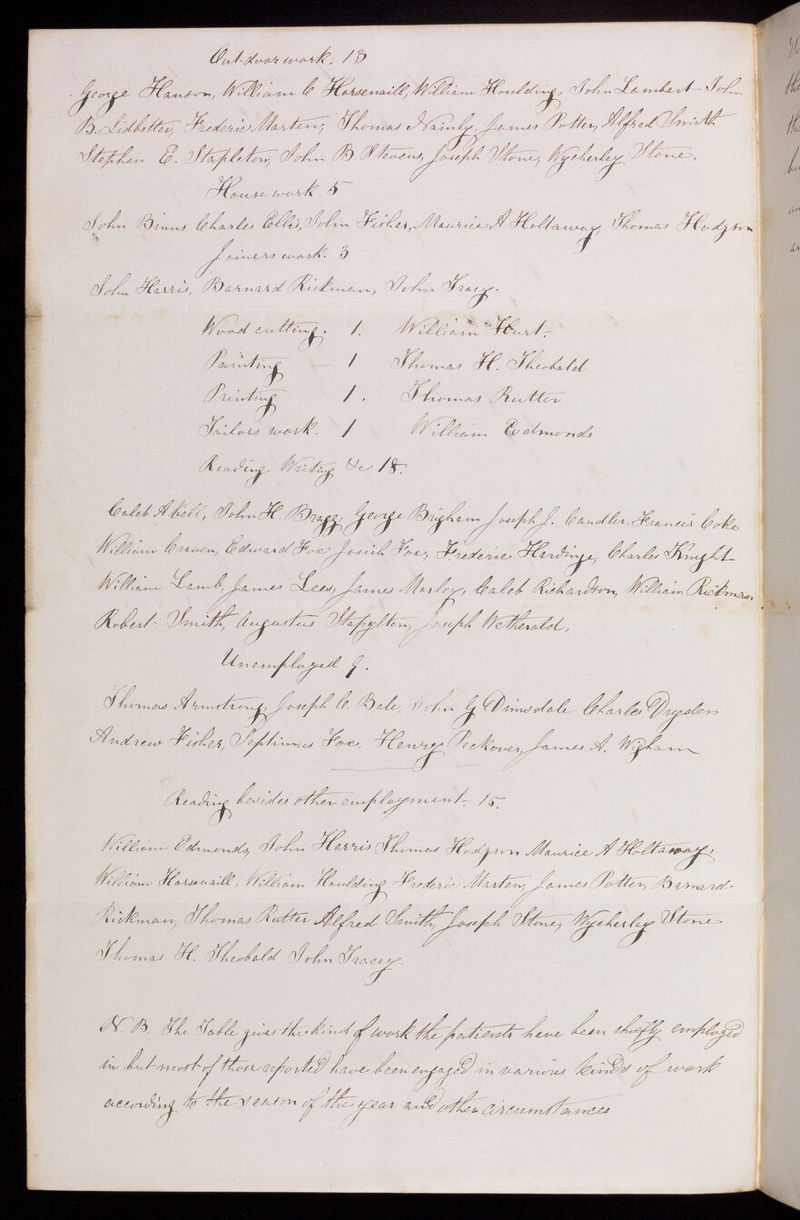 Out-door work. 13
George Hanson, William C Horsenaill, William Houlding, John Lambert John
B. Lidbetter, Frederic Marten, Thomas Nainby, James Potter, Alfred Smith
Stephen E. Stapleton, John B Stevens, Joseph Stone, Wycherley Stone.
House work 5
John Binns Charles Ellis, John Fisher, Maurice A Holtaway Thomas Hodgson
Joiners work. 3
John Harris, Barnard Rickman, John Tracy.
Wood cutting. 1. William Hurt.
Painting — 1 Thomas H. Theobald
Printing 1. Thomas Rutter
Tailors work. 1 William Edmonds
Reading Writing &c 18.
Caleb Abell, John H. Bragg, George Brigham Joseph J. Candler, Francis Coke
William Craven, Edward Fox Josiah Fox, Frederic Hardinge, Charles Knight
William Lamb, James Lees, James Morley, Caleb Richardson, William Rickman,
Robert Smith, Augustus Stapylton, Joseph Wetherald.
Unemployed 9.
Thomas Armstrong, Joseph C. Bale, John G Dimsdale Charles Dryden
Andrew Fisher, Septimus Fox, Henry Peckover, James A. Wigham
Reading besides other employment. 15.
William Edmonds, John Harris Thomas Hodgson Maurice A Holtaway.
William Horsenaill, William Houlding Frederic Marten, James Potter, Barnard
Rickman, Thomas Rutter Alfred Smith, Joseph Stone, Wycherley Stone
Thomas H. Theobald John Tracey.
N.B. The Table gives the kind of work the patients have been chiefly employed
in but most of those reported have been engaged in various kinds of work
according to the season of the year and other circumstances